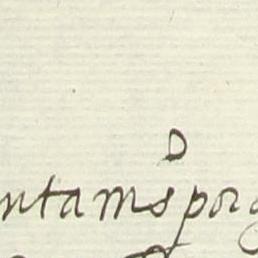 D
ntams porq